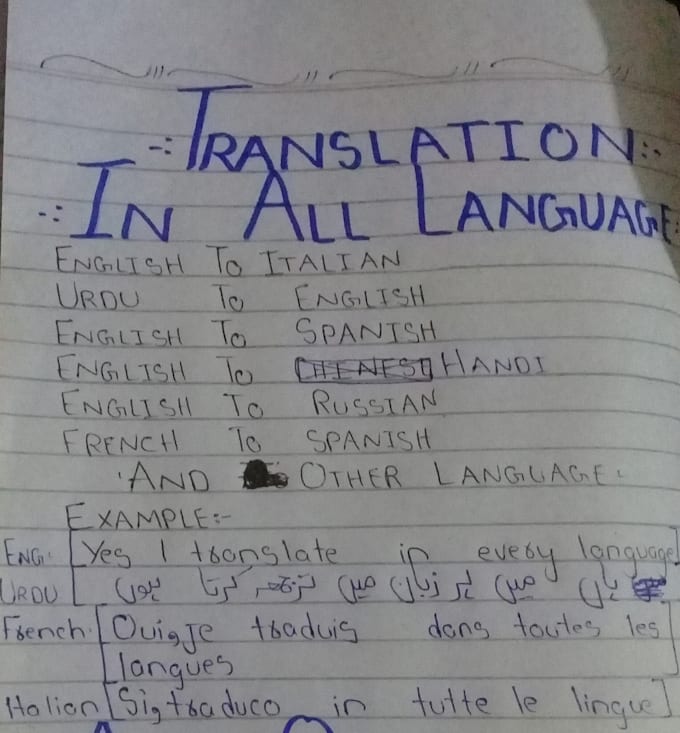 -:TRANSLATION:-
-:IN ALL LANGUAGE:
ENGLISH TO ITALIAN
URDU TO ENGLISH
ENGLISH TO SPANISH
ENGLISH TO HANDI
ENGLISH TO RUSSIAN
FRENCH TO SPANISH
'AND OTHER LANGUAGE.
EXAMPLE:-
ENG. [Yes I translate in every language]
URDU [ ہاں میں ہر زبان میں ترجمہ کرتا ہوں
French. [Oui, je traduis dans toutes les
langues]
Italian [Si, traduco in tutte le lingue]